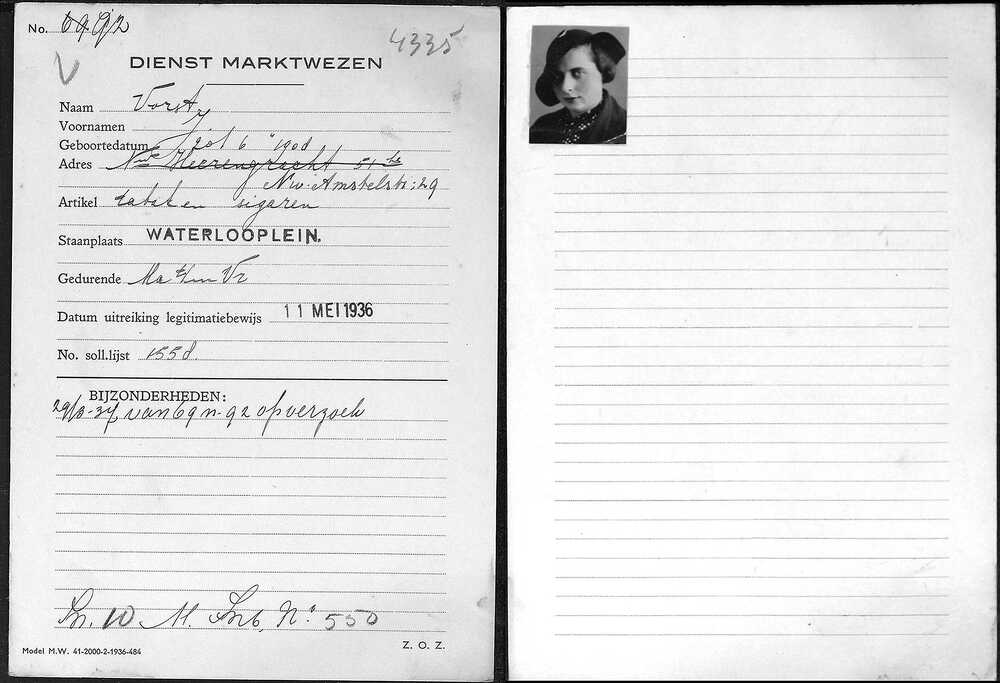 No. 69 92
4335
V
DIENST MARKTWEZEN
Naam Vorst
Voornamen
Geboortedatum 6 1908
Adres Nwe Heerengracht 51 hs
Nw. Amstelstr: 29
Artikel tabak en sigaren
Staanplaats WATERLOOPLEIN.
Gedurende Ma t/m Vr
Datum uitreiking legitimatiebewijs 11 MEI 1936
No. soll.lijst 1558.
BIJZONDERHEDEN:
29/8-37 van 69 n. 92 op verzoek
M. No 550
Model M.W. 41-2000-2-1936-484
Z. O. Z.